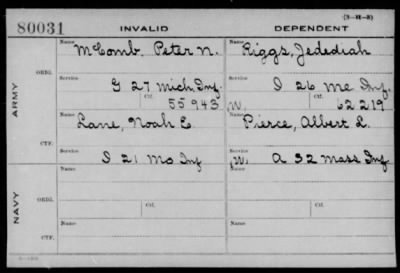 (3-11-3)
80031 INVALID DEPENDENT
Name McComb, Peter N. Name Riggs, Jedediah
ARMY
ORIG.
Service G 27 Mich Inf. Service I 26 Me Inf.
Ctf. 55943 W. Ctf. 62219
Name Lane, Noah E. Name Pierce, Albert L.
CTF.
Service I 21 Mo Inf Service (W) A 32 Mass Inf
NAVY
ORIG.
Name Name
Ctf. Ctf.
CTF.
Name Name